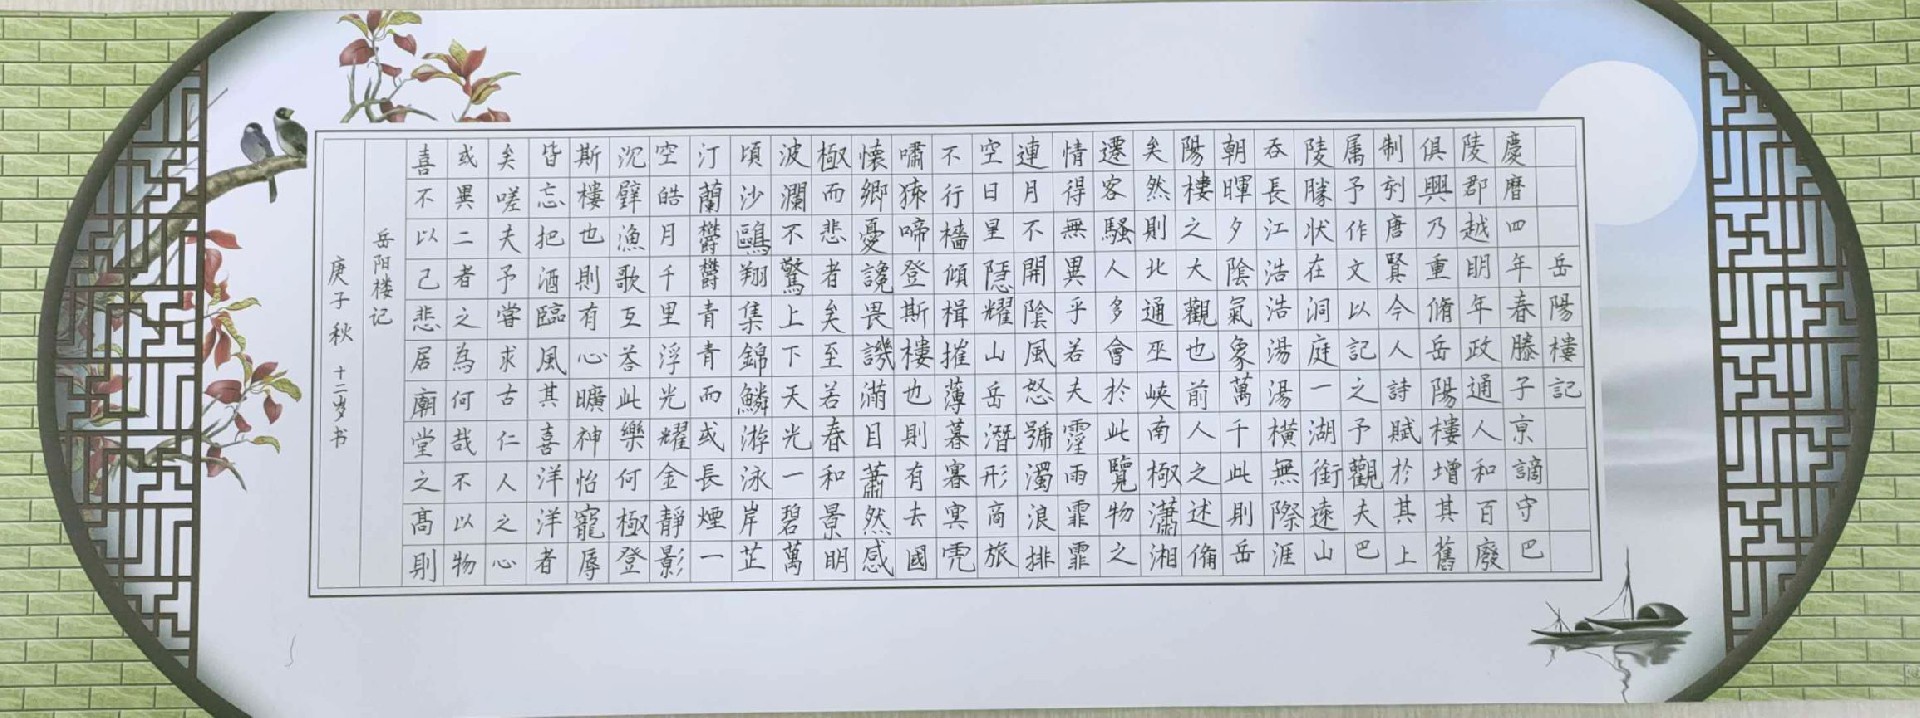 岳陽樓記
慶曆四年春滕子京謫守巴
陵郡越明年政通人和百廢
俱興乃重脩岳陽樓增其舊
制刻唐賢今人詩賦於其上
属予作文以記之予觀夫巴
陵勝狀在洞庭一湖銜遠山
吞長江浩浩湯湯橫無際涯
朝暉夕陰氣象萬千此則岳
陽樓之大觀也前人之述備
矣然則北通巫峽南極瀟湘
遷客騷人多會於此覽物之
情得無異乎若夫霪雨霏霏
連月不開陰風怒號濁浪排
空日星隱耀山岳潛形商旅
不行檣傾楫摧薄暮冥冥虎
嘯猿啼登斯樓也則有去國
懷鄉憂讒畏譏滿目蕭然感
極而悲者矣至若春和景明
波瀾不驚上下天光一碧萬
頃沙鷗翔集錦鱗游泳岸芷
汀蘭鬱鬱青青而或長煙一
空皓月千里浮光耀金靜影
沉璧漁歌互荅此樂何極登
斯樓也則有心曠神怡寵辱
皆忘把酒臨風其喜洋洋者
矣嗟夫予嘗求古仁人之心
或異二者之為何哉不以物
喜不以己悲居廟堂之高則
岳阳楼记
庚子秋 十二岁书